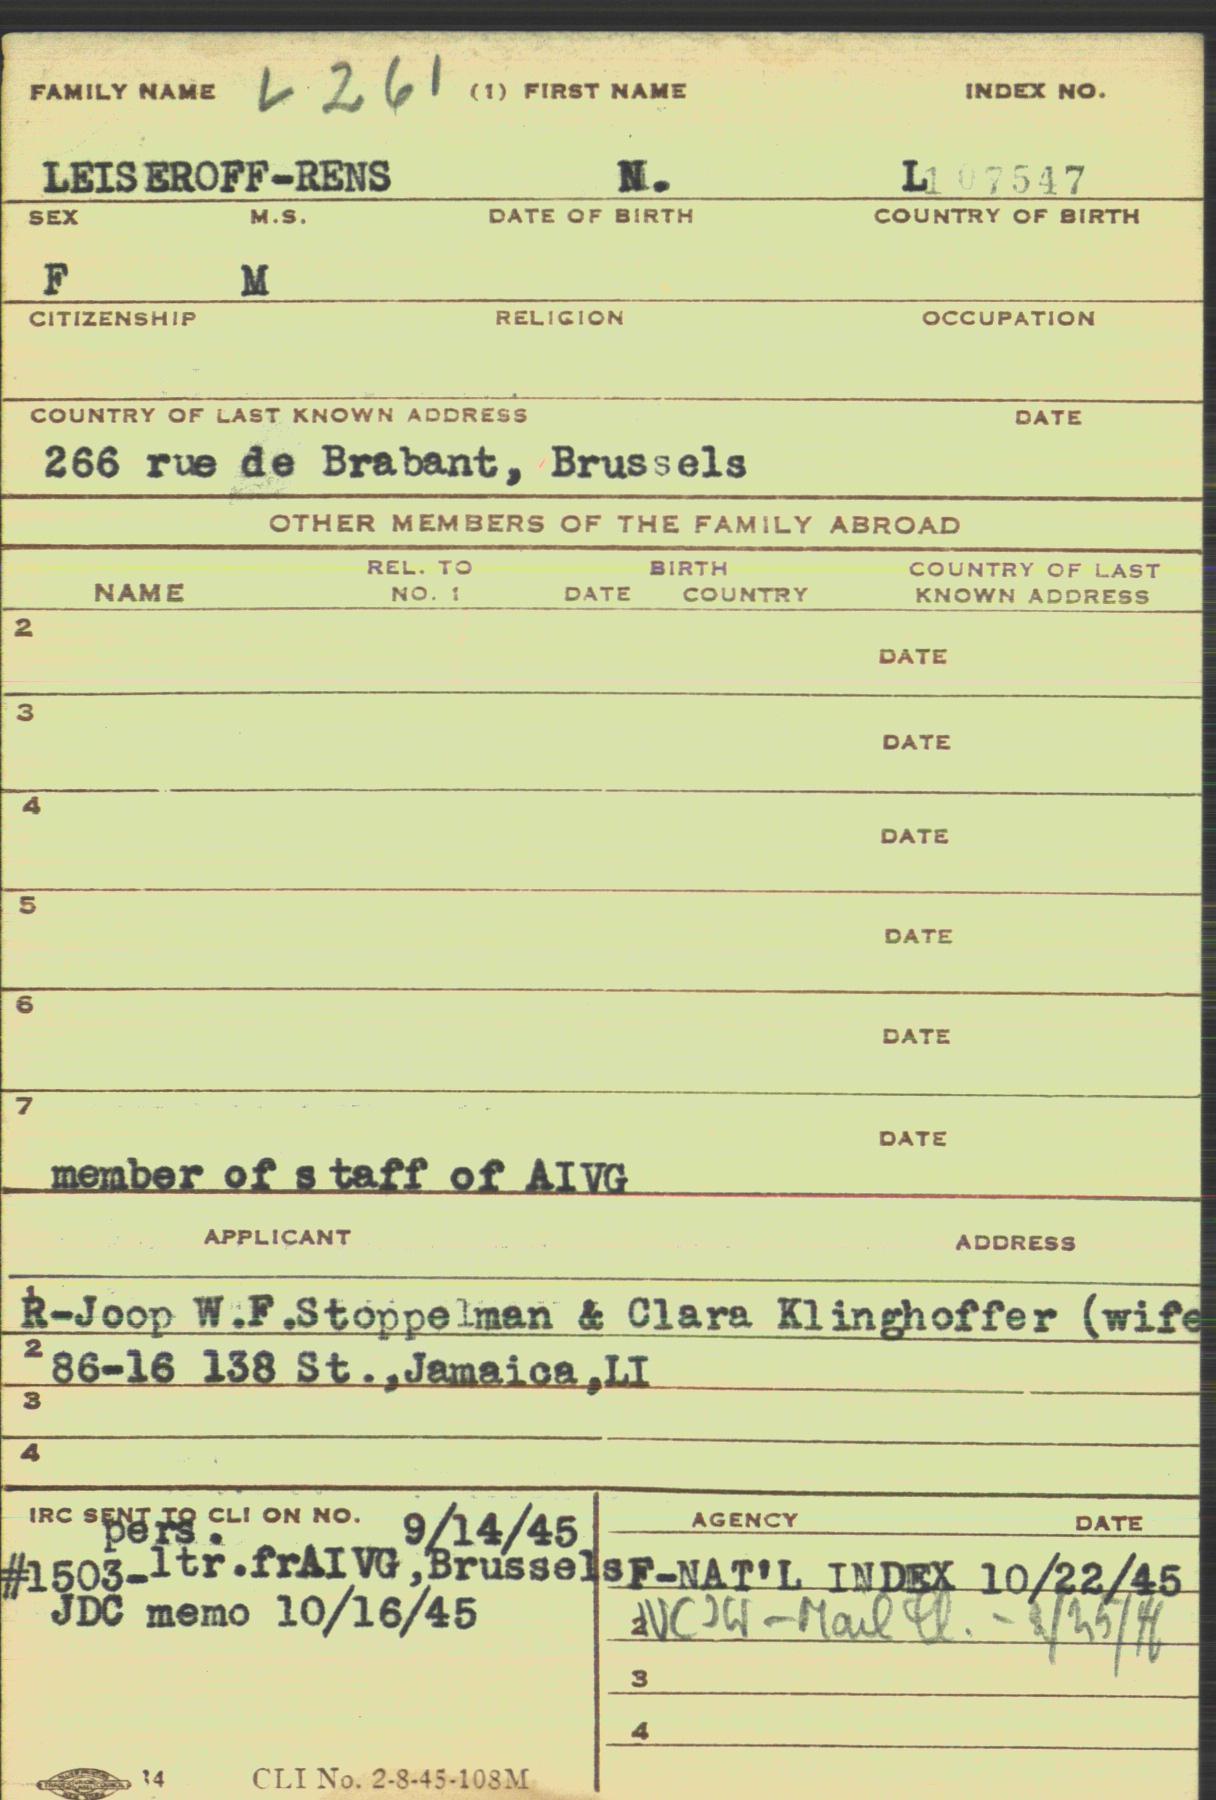 FAMILY NAME L 261 (1) FIRST NAME INDEX NO.
LEISEROFF-RENS N. L107547
SEX M.S. DATE OF BIRTH COUNTRY OF BIRTH
F M
CITIZENSHIP RELIGION OCCUPATION
COUNTRY OF LAST KNOWN ADDRESS DATE
266 rue de Brabant, Brussels
OTHER MEMBERS OF THE FAMILY ABROAD
REL. TO BIRTH COUNTRY OF LAST
NAME NO. 1 DATE COUNTRY KNOWN ADDRESS
2
DATE
3
DATE
4
DATE
5
DATE
6
DATE
7
DATE
member of staff of AIVG
APPLICANT ADDRESS
R-Joop W.F.Stoppelman & Clara Klinghoffer (wife
2 86-16 138 St.,Jamaica,LI
3
4
IRC SENT TO CLI ON NO. AGENCY DATE
pers. 9/14/45
#1503-ltr.frAIVG,Brussels F-NAT'L INDEX 10/22/45
JDC memo 10/16/45
2 NCJW - Mail
3
4
14 CLI No. 2-8-45-108M